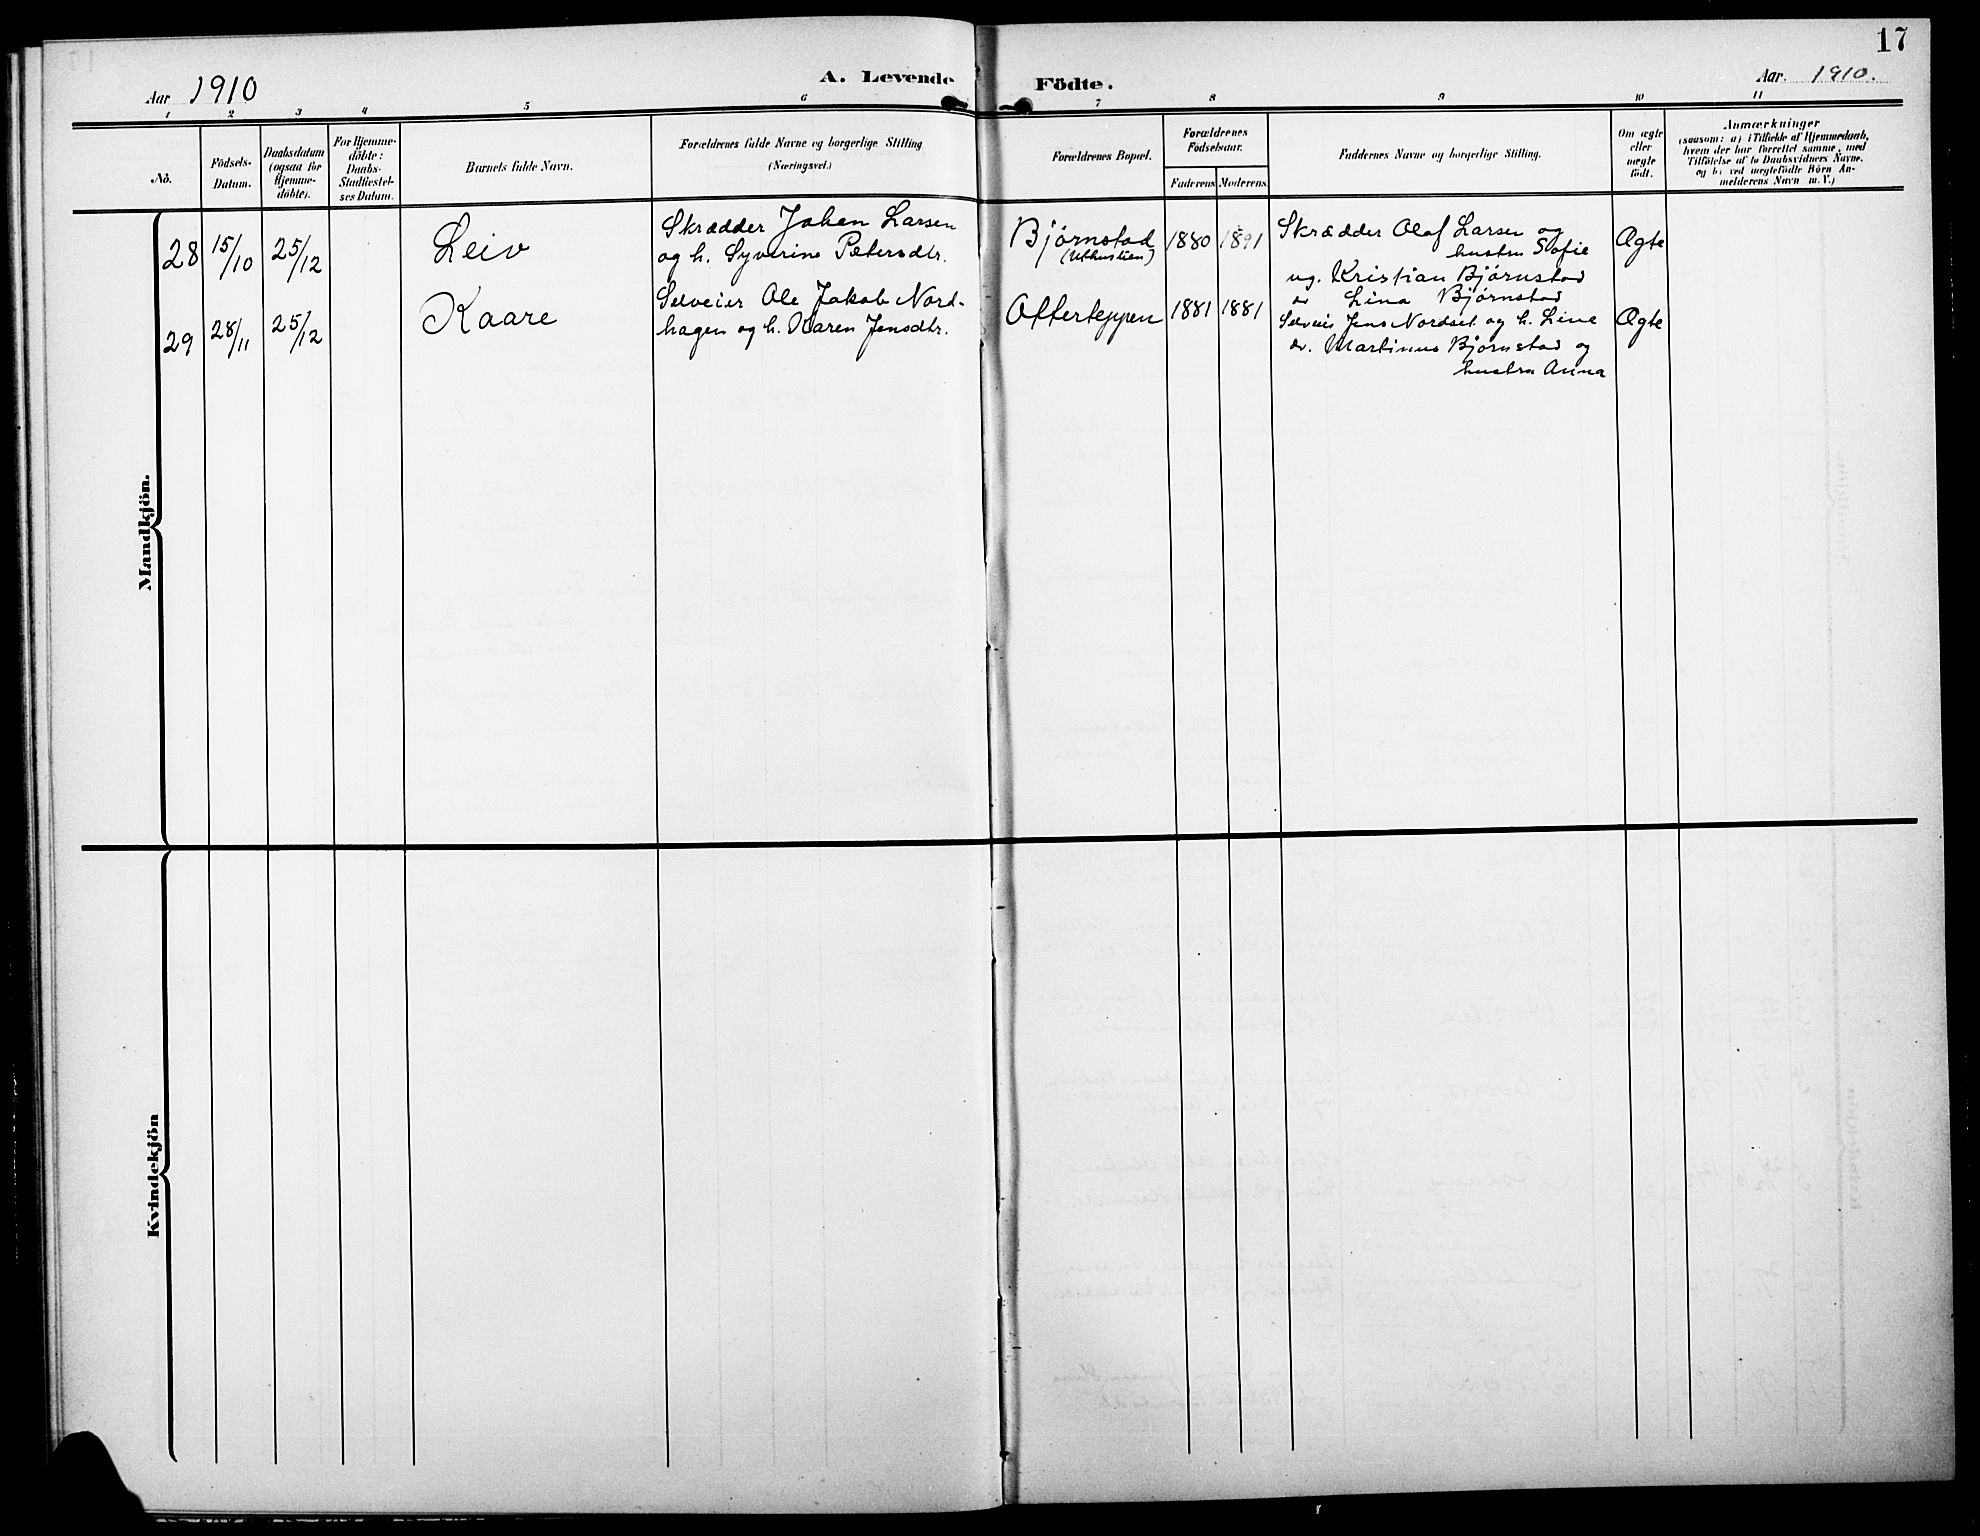 17
Aar 1910
A. Levende Födte.
Aar. 1910.
1 2 3 4 5 6 7 8 9 10 11
No.
Födsels-
Datum.
Daabsdatum
(ogsaa for
Hjemme-
döbte).
For Hjemme-
döbte:
Daabs-
Stadfæstel-
ses Datum.
Barnets fulde Navn.
Forældrenes fulde Navne og borgerlige Stilling
(Næringsvei.)
Forældrenes Bopæl.
Forældrenes
Födselsaar.
Faderens Moderens
Faddernes Navne og borgerlige Stilling.
Om ægte
eller
uægte
födt.
Anmærkninger
(saasom: a) i Tilfælde af Hjemmedaab,
hvem der har forrettet samme, med
Tilföielse af to Daabsvidners Navne,
og b) ved uægtefödte Börn An-
melderens Navn m. V.)
Mandkjön.
28 15/10 25/12 Leiv
Skrædder Johan Larsen
og h. Syverine Petersdtr.
Bjørnstad
1880 1891
Skrædder Olaf Larsen og
hustru Sofie
ug. Kristian Bjørnstad
Lina Bjørnstad
Ægte
29 28/11 25/12 Kaare
Selveier Ole Jakob Nord-
hagen og h. Karen Jensdtr.
Otterteppen
1881 1881
Selveier Jens Nordset og h. Line
Martinus Bjørnstad og
hustru Anna
Ægte
Kvindekjön